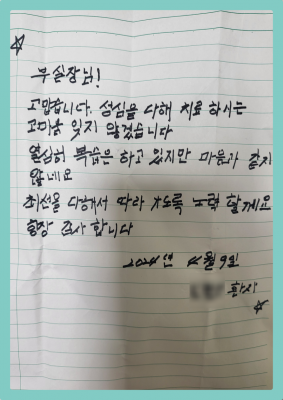 부 실장님!
고맙습니다. 성심을 다해 치료 하시는
고마움 잊지 않겠습니다
열심히 복습은 하고 있지만 마음과 같지
않네요
최선을 다해서 따라 가도록 노력 할께요
항상 감사 합니다
2024년 4월 9일
환자